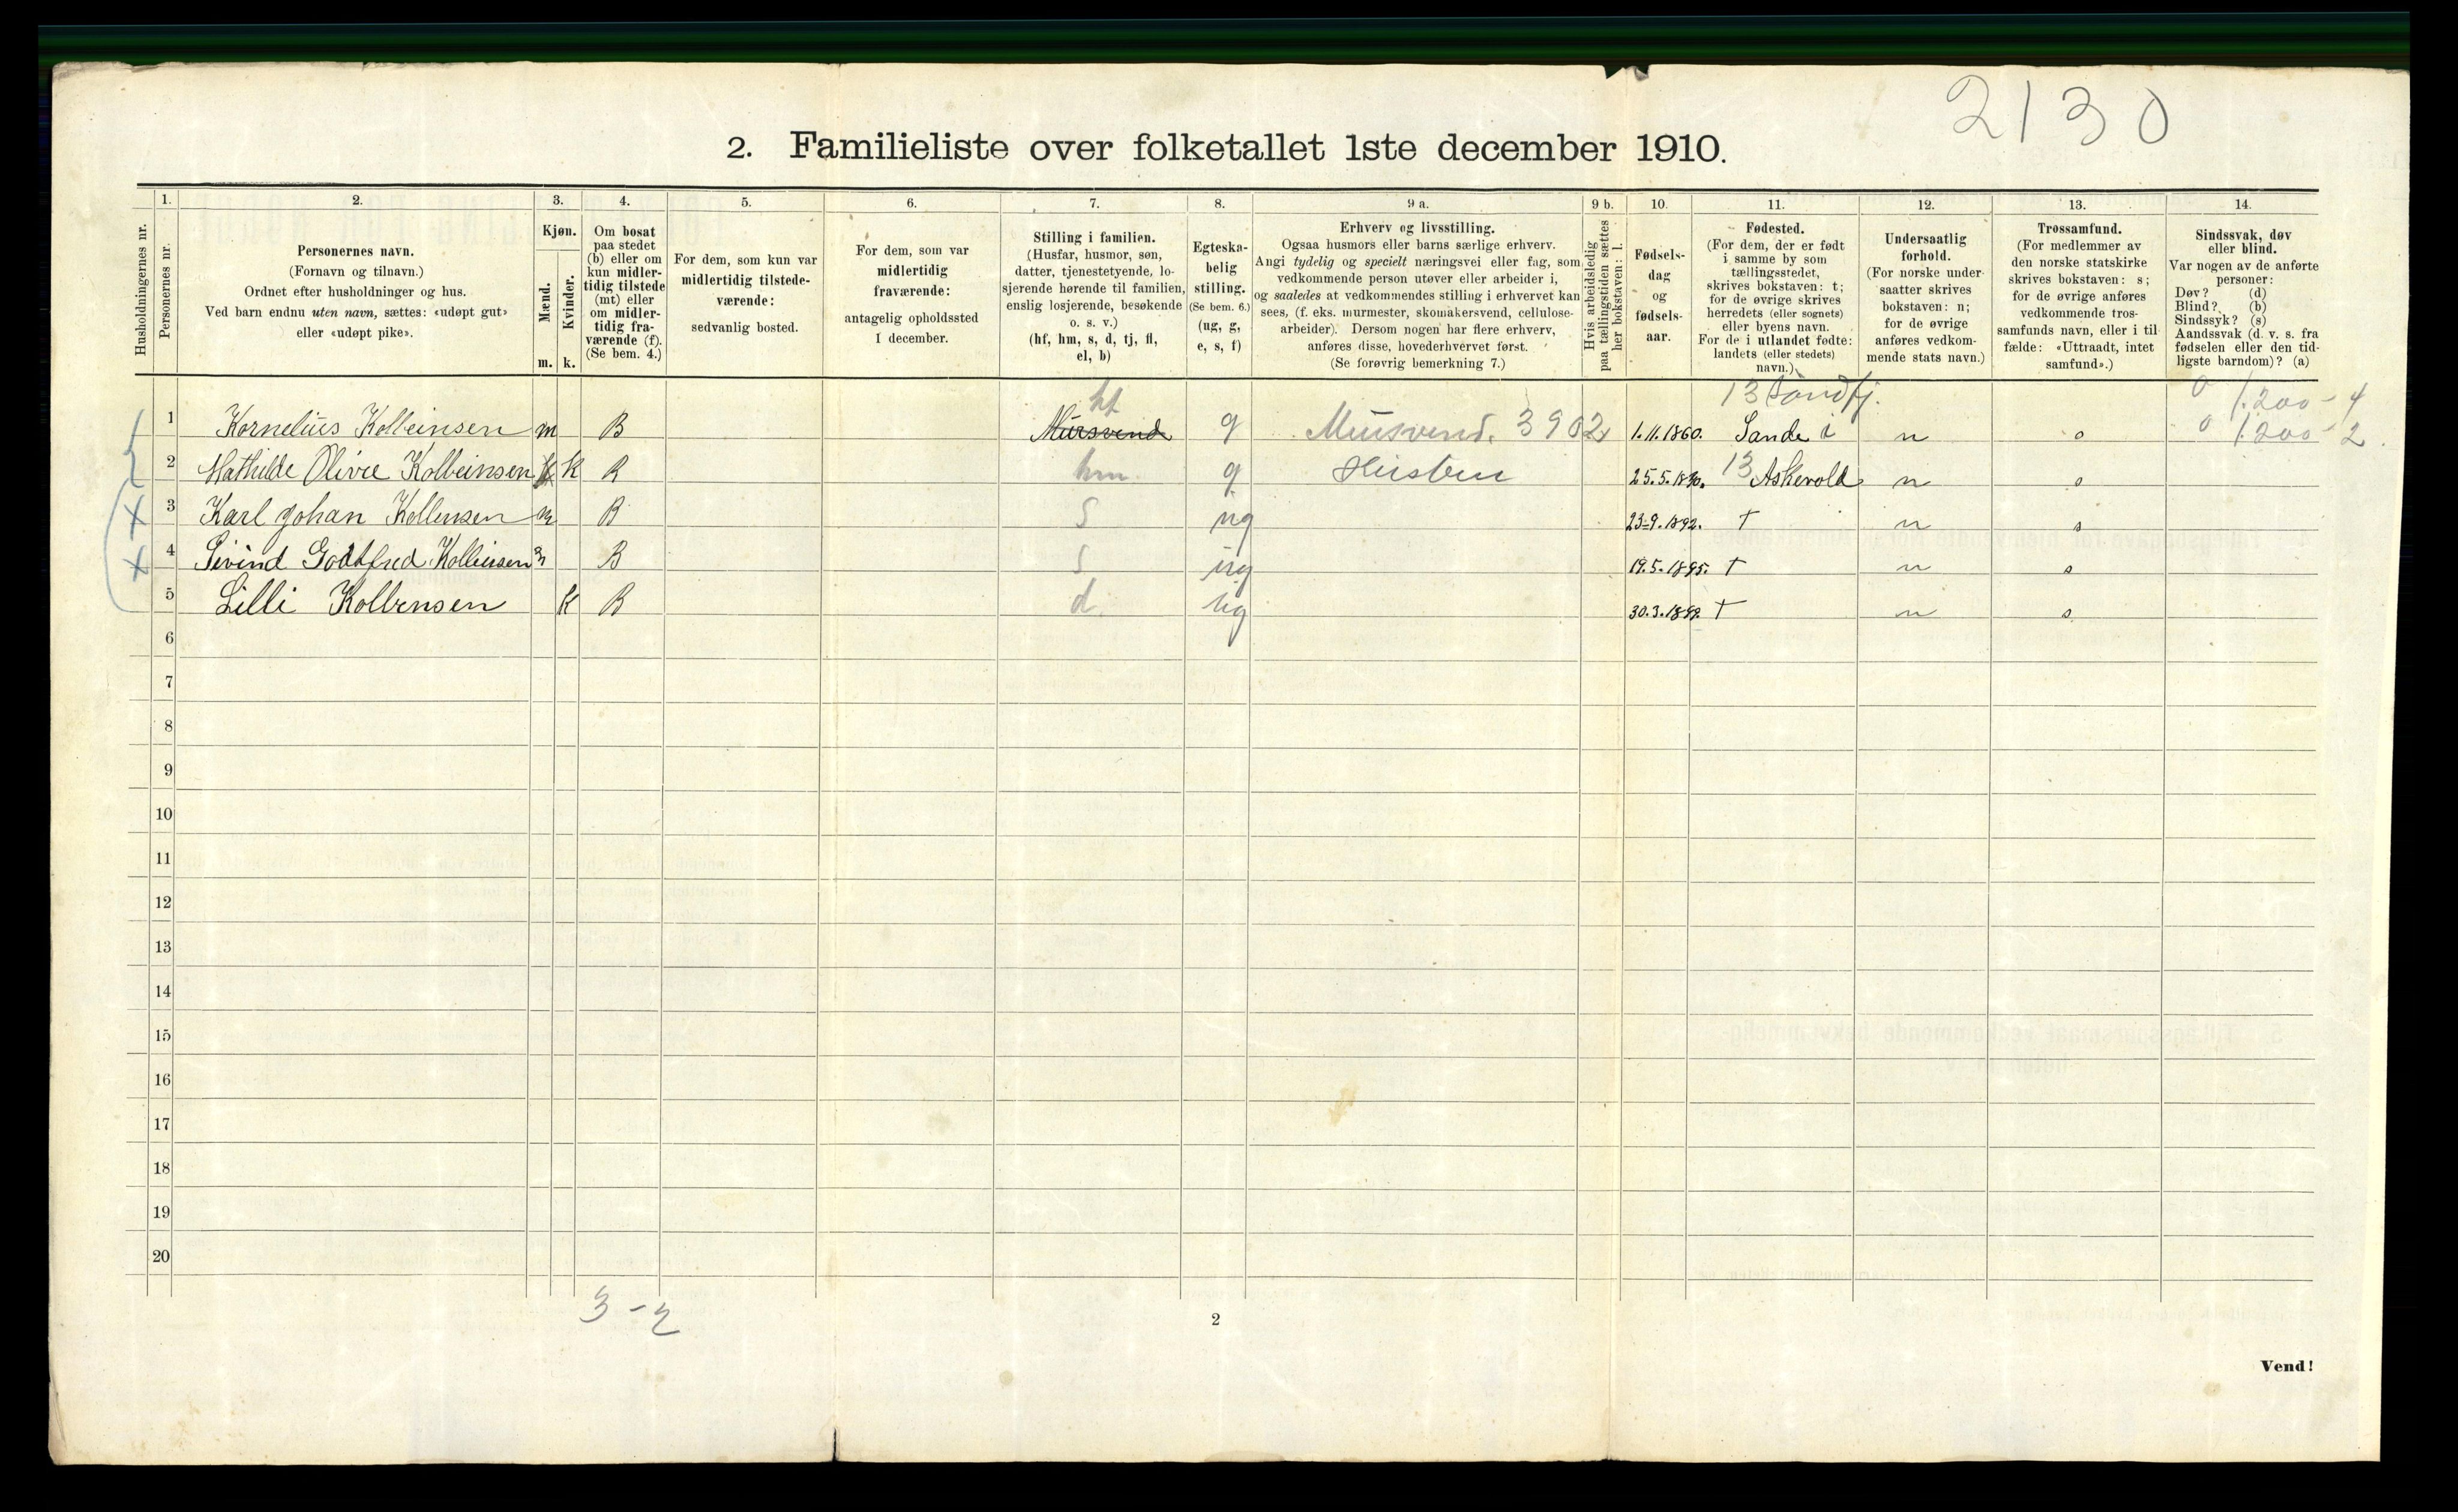 2130
2. Familieliste over folketallet 1ste december 1910.
Husholdningernes nr.
1. Personernes nr.
2. Personernes navn.
(Fornavn og tilnavn.)
Ordnet efter husholdninger og hus.
Ved barn endnu uten navn, sættes: «udøpt gut»
eller «udøpt pike».
3. Kjøn.
Mænd. m.
Kvinder. k.
4. Om bosat
paa stedet
(b) eller om
kun midler-
tidig tilstede
(mt) eller
om midler-
tidig fra-
værende (f).
(Se bem. 4.)
5. For dem, som kun var
midlertidig tilstede-
værende:
sedvanlig bosted.
6. For dem, som var
midlertidig
fraværende:
antagelig opholdssted
1 december.
7. Stilling i familien.
(Husfar, husmor, søn,
datter, tjenestetyende, lo-
sjerende hørende til familien,
enslig losjerende, besøkende
o. s. v.)
(hf, hm, s, d, tj, fl,
el, b)
8. Egteska-
belig
stilling.
(Se bem. 6.)
(ug, g,
e, s, f)
9 a. Erhverv og livsstilling.
Ogsaa husmors eller barns særlige erhverv.
Angi tydelig og specielt næringsvei eller fag, som
vedkommende person utøver eller arbeider i,
og saaledes at vedkommendes stilling i erhvervet kan
sees, (f. eks. murmester, skomakersvend, cellulose-
arbeider). Dersom nogen har flere erhverv,
anføres disse, hovederhvervet først.
(Se forøvrig bemerkning 7.)
9 b. Hvis arbeidsledig
paa tællingstiden sættes
her bokstaven: l.
10. Fødsels-
dag
og
fødsels-
aar.
11. Fødested.
(For dem, der er født
i samme by som
tællingsstedet,
skrives bokstaven: t;
for de øvrige skrives
herredets (eller sognets)
eller byens navn.
For de i utlandet fødte:
landets (eller stedets)
navn.)
12. Undersaatlig
forhold.
(For norske under-
saatter skrives
bokstaven: n;
for de øvrige
anføres vedkom-
mende stats navn.)
13. Trossamfund.
(For medlemmer av
den norske statskirke
skrives bokstaven: s;
for de øvrige anføres
vedkommende tros-
samfunds navn, eller i til-
fælde: «Uttraadt, intet
samfund».)
14. Sindssvak, døv
eller blind.
Var nogen av de anførte
personer:
Døv? (d)
Blind? (b)
Sindssyk? (s)
Aandssvak (d. v. s. fra
fødselen eller den tid-
ligste barndom)? (a)
hf 13 Søndfj. 0 1.200 - 4
1 Kornelius Kolbeinsen m B Mursvend g Mursvend. 3902 1.11.1860. Sande i n s 0 1.200 - 2
2 Mathilde Olive Kolbeinsen k B hm. g Hustru 25.5. 13 Askevold n s
3 Karl Johan Kolbensen m B s ug 23-9.1892. t n s
4 Eivind Godtfred Kolbeinsen m B s ug 19.5.1895. t n s
5 Lilli Kolbensen k B d. ug 30.3.1899. t n s
6
7
8
9
10
11
12
13
14
15
16
17
18
19
20
3-2
2
Vend!